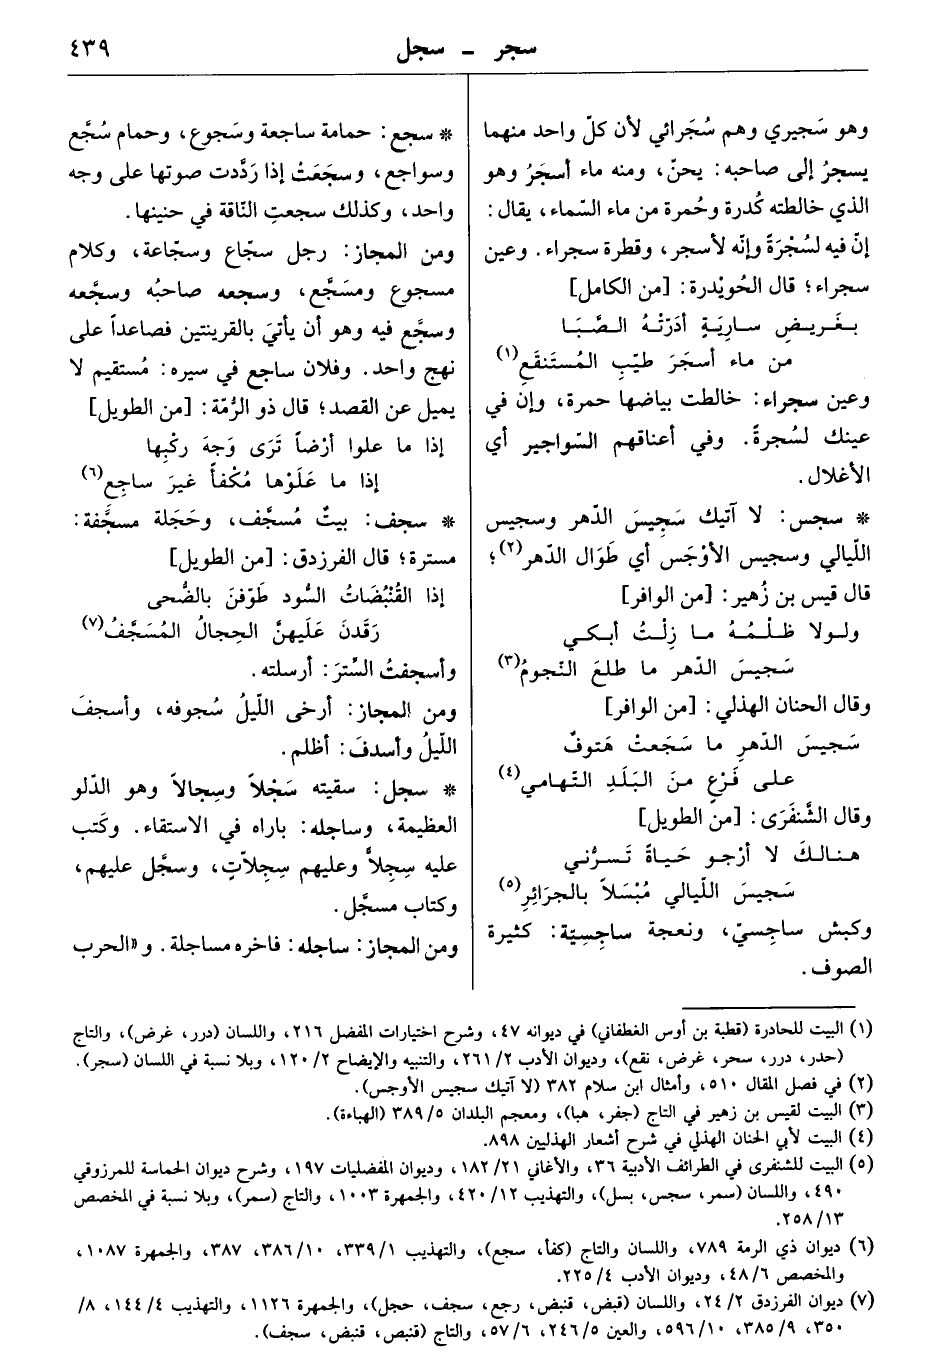 سجر ــ سجل ٤٣٩
وهو سَجيري وهم سُجَرائي لأن كلّ واحد منهما
يسجرُ إلى صاحبه: يحنّ، ومنه ماء أسجَرُ وهو
الذي خالطته كُدرة وحُمرة من ماء السّماء، يقال:
إنّ فيه لسُجْرَةً وإنّه لأسجر، وقطرة سجراء. وعين
سجراء؛ قال الحُويْدرة: [من الكامل]
بِغَريضِ سارِيَةٍ أدَرّتْهُ الصَّبَا
من ماء أسجَرَ طيّبِ المُستَنقَعِ(١)
وعين سجراء: خالطت بياضها حمرة، وإن في
عينك لسُجرةً. وفي أعناقهم السّواجير أي
الأغلال.
* سجس: لا آتيك سَجِيسَ الدّهر وسجيس
اللّيالي وسجيس الأوْجَس أي طَوَال الدّهر(٢)؛
قال قيس بن زُهير: [من الوافر]
ولولا ظلْمُهُ ما زِلْتُ أبكي
سَجيسَ الدّهر ما طلعَ النّجومُ(٣)
وقال الحنان الهذلي: [من الوافر]
سَجيسَ الدّهرِ ما سَجَعتْ هَتوفٌ
على فَرْعٍ منَ البَلَدِ التهامي(٤)
وقال الشَّنفَرَى: [من الطويل]
هنالكَ لا أرْجو حَياةً تَسرُّني
سَجيسَ اللّيالي مُبْسَلاً بالجرَائِرِ(٥)
وكبش ساجِسيّ، ونعجة ساجِسِيّة: كثيرة
الصوف.
* سجع: حمامة ساجعة وسَجوع، وحمام سُجَّع
وسواجع، وسجَعَتْ إذا رَدَّدت صوتها على وجه
واحد، وكذلك سجعتِ النّاقة في حنينها.
ومن المجاز: رجل سجّاع وسجّاعة، وكلام
مسجوع ومسَجَّع، وسجعه صاحبُه وسجَّعه
وسجَّع فيه وهو أن يأتيَ بالقرينتين فصاعداً على
نهج واحد. وفلان ساجع في سيره: مُستقيم لا
يميل عن القصد؛ قال ذو الرُّمّة: [من الطويل]
إذا ما علوا أرْضاً تَرَى وَجهَ ركْبِها
إذا ما عَلَوْها مُكْفأً غيرَ ساجِعِ(٦)
* سجف: بيتٌ مُسجَّف، وحَجَلة مسجَّفة:
مسترة؛ قال الفرزدق: [من الطويل]
إذا القُنْبُضَاتُ السُّود طَوّفنَ بالضُّحى
رَقَدنَ عَلَيهنَّ الحِجالُ المُسَجَّفُ(٧)
وأسجفتُ السِّترَ: أرسلته.
ومن المجاز: أرخى اللّيلُ سُجوفه، وأسجفَ
اللّيلُ وأسدفَ: أظلم.
* سجل: سقيته سَجْلاً وسِجالاً وهو الدّلو
العظيمة، وساجله: باراه في الاستقاء. وكَتب
عليه سِجِلاًّ وعليهم سِجِلاّتٍ، وسجَّل عليهم،
وكتاب مسجَّل.
ومن المجاز: ساجله: فاخره مساجلة. و«الحرب
(١) البيت للحادرة (قطبة بن أوس الغطفاني) في ديوانه ٤٧، وشرح اختيارات المفضل ٢١٦، واللسان (درر، غرض)، والتاج
(حدر، درر، سحر، غرض، نقع)، وديوان الأدب ٢/ ٢٦١، والتنبيه والإيضاح ٢/ ١٢٠، وبلا نسبة في اللسان (سجر).
(٢) في فصل المقال ٥١٠، وأمثال ابن سلام ٣٨٢ (لا آتيك سجيس الأوجس).
(٣) البيت لقيس بن زهير في التاج (جفر، هبا)، ومعجم البلدان ٥/ ٣٨٩ (الهباءة).
(٤) البيت لأبي الحنان الهذلي في شرح أشعار الهذليين ٨٩٨.
(٥) البيت للشنفرى في الطرائف الأدبية ٣٦، والأغاني ٢١/ ١٨٢، وديوان المفضليات ١٩٧، وشرح ديوان الحماسة للمرزوقي
٤٩٠، واللسان (سمر، سجس، بسل)، والتهذيب ١٢/ ٤٢٠، والجمهرة ١٠٠٣، والتاج (سمر)، وبلا نسبة في المخصص
١٣/ ٢٥٨.
(٦) ديوان ذي الرمة ٧٨٩، واللسان والتاج (كفأ، سجع)، والتهذيب ١/ ٣٣٩، ١٠/ ٣٨٦، ٣٨٧، والجمهرة ١٠٨٧،
والمخصص ٦/ ٤٨، وديوان الأدب ٤/ ٢٢٥.
(٧) ديوان الفرزدق ٢/ ٢٤، واللسان (قبض، قنبض، رجع، سجف، حجل)، والجمهرة ١١٢٦، والتهذيب ٤/ ١٤٤، ٨/
٣٥٠، ٩/ ٣٨٥، ١٠/ ٥٩٦، والعين ٥/ ٢٤٦، ٦/ ٥٧، والتاج (قنبص، قنبض، سجف).